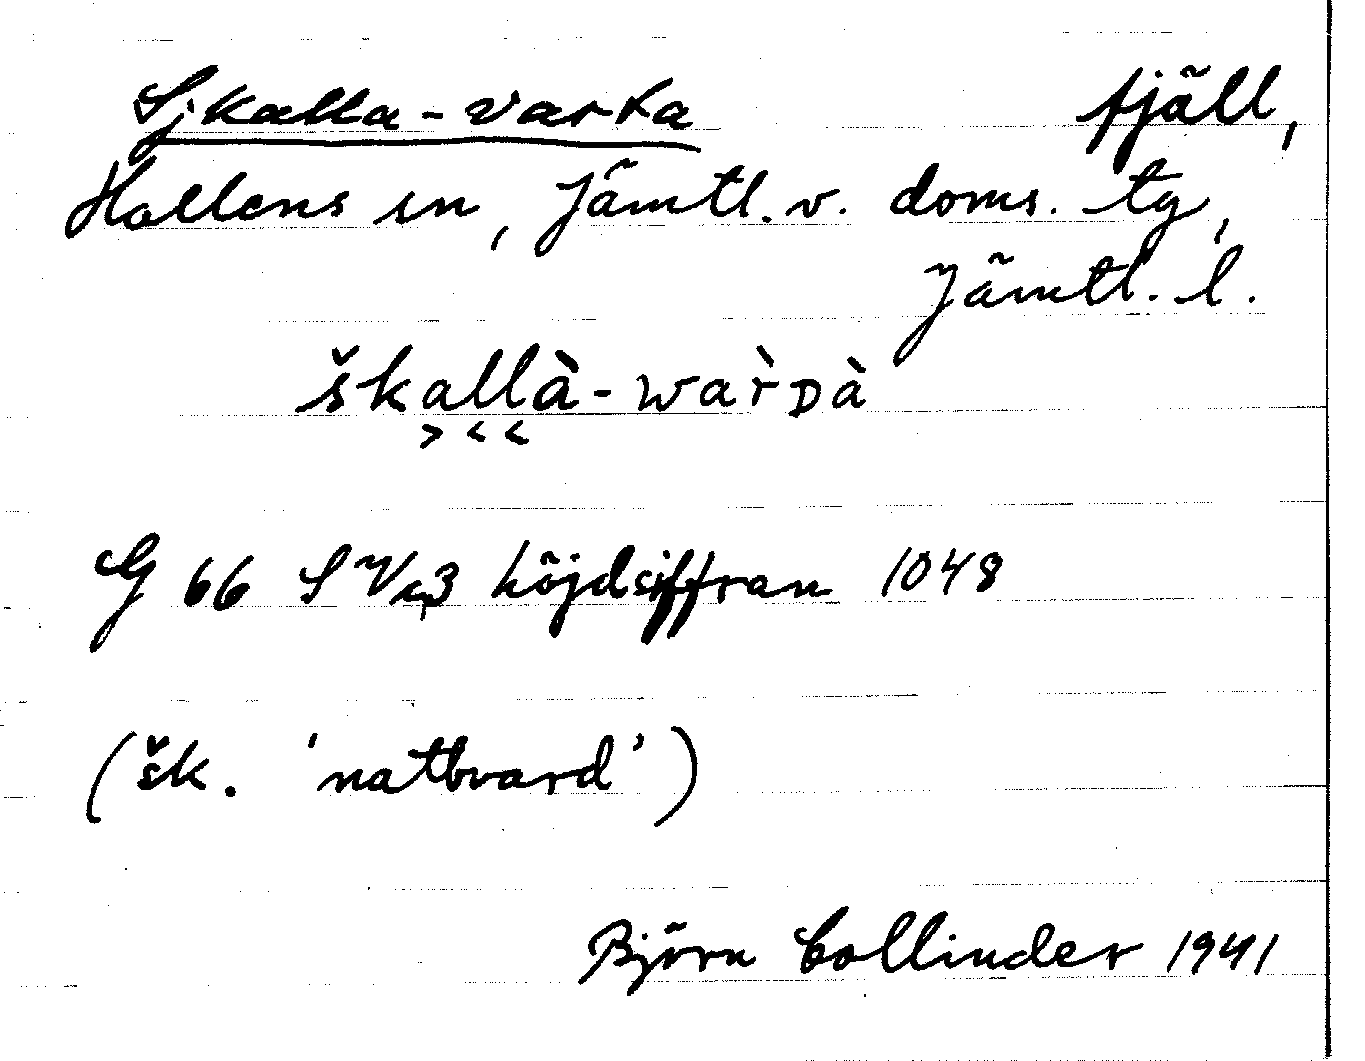 Sjkalla-varta fjäll,
Hallens sn, Jämtl. v. doms. tg,
Jämtl. l.
škallà-warᴅ̀à
> < <
G 66 S höjdsiffran 1048
(šk. 'nattvard')
Björn Collinder 1941